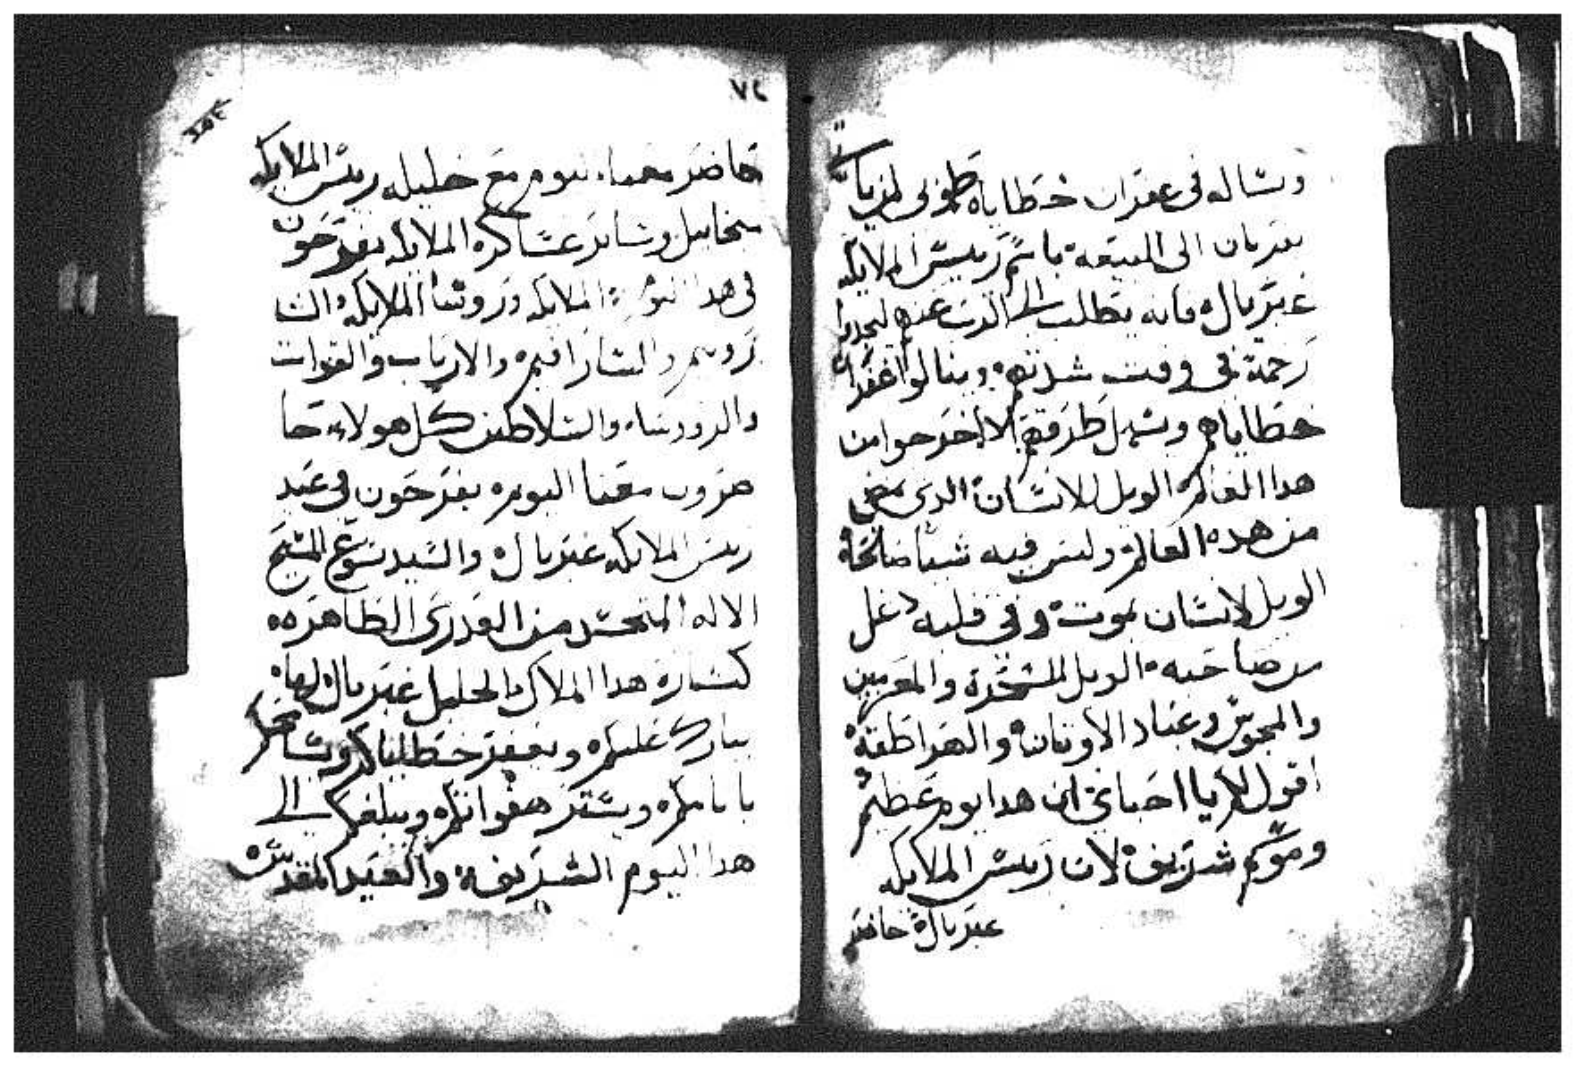 ونساله فى غفران خطاياه طوبى لمن يأتى
بقربان الى البيعه باسم رييس الملايكه
غبريال فانه يطلب الى الرب عنهم ليجدوا
رحمة فى وقت شدتهم وينالوا غفران
خطاياهم ويسهل طرقهم اذا اخرجوا من
هدا العالم الويل للانسان الدى يمضى
من هده العالم وليس فيه شيا صالحا
الويل لانسان يموت وفى قلبه دغل
من صاحبه الويل للسحرة والمعزمين
والمجوس وعباد الاوتان والهراطقه
اقول لكم يا احباى ان هدا يوم عظيم
وموسم شريف لان رييس الملايكه
غبريال حاضر
٧٤
حاضر معنا اليوم مع خليله رييس الملايكه
ميخاييل وساير عساكر الملايكه يفرحون
فى هدا اليوم الملايكه وروسا الملايكه الشا
روبيم والسارافيم والارباب والقوات
والرووسا والسلاطين كل هولاء حا
ضرون معنا اليوم يفرحون فى عيد
رييس الملايكه غبريال والسيد يسوع المسيح
الاله المتجسد من العدرى الطاهره
كبشارة هدا الملاك الجليل غبريال لها
يبارك عليكم ويغفر خطاياكم ويسامحكم
باتامكم ويستر هفواتكم ويبلغكم الى
هدا اليوم الشريف والعيد المقدس